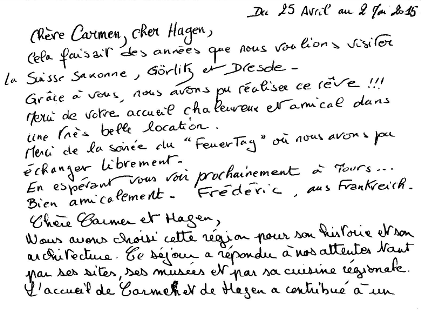 Du 25 Avril au 2 Mai 2015
Chère Carmen, cher Hagen,
Cela faisait des années que nous voulions visiter
la Suisse Saxonne, Görlitz et Dresde -
Grâce à vous, nous avons pu réaliser ce rêve !!!
Merci de votre accueil chaleureux et amical dans
une très belle location.
Merci de la soirée du "FeuerTag" où nous avons pu
échanger librement -
En espérant vous voir prochainement à Tours...
Bien amicalement - Frédéric, aus Frankreich -
Chère Carmen et Hagen,
Nous avons choisi cette région pour son histoire et son
architecture. Ce séjour a répondu à nos attentes tant
par ses sites, ses musées et par sa cuisine régionale.
L'accueil de Carmen et de Hagen a contribué à un